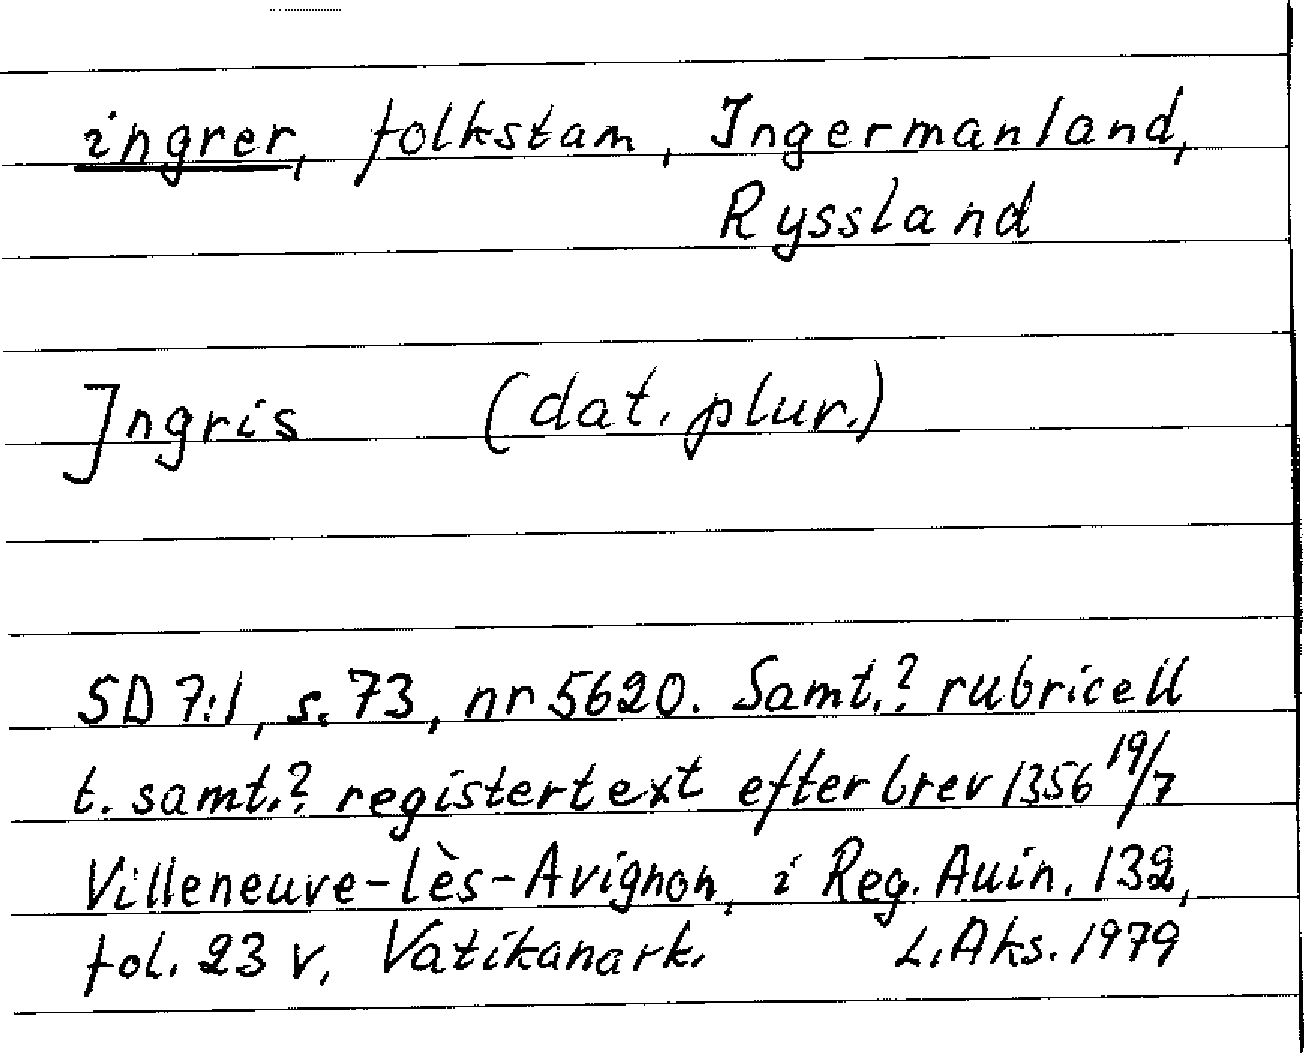 ingrer, folkstam, Ingermanland,
Ryssland
Ingris (dat. plur.)
SD 7:1, s. 73, nr 5620. Samt.? rubricell
t. samt.? registertext efter brev 1356 19/7
Villeneuve-lès-Avignon, i Reg. Auin. 132,
fol. 23 v, Vatikanark. L. Aks. 1979